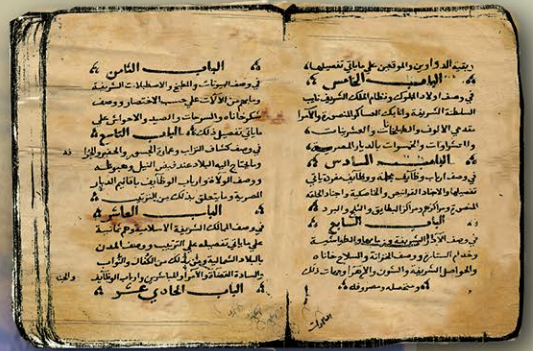 وبقية الدواوين والموقعين على ماياتى تفصيلها
الباب الخامس
فى وصف اولاد الملوك ونظام الملك الشريف نايب
السلطنة الشريفة واتابك العساكر المنصورة والامرا
مقدمى الالوف والطبلخانات والعشرينات
والعشراوات والخمسوات بالديار المصرية
الباب السادس
فى وصف ارباب وظائف بجملة ووظائف مفردة ياتى
تفصيلها والاجناد القرانيص والخاصكية واجناد الحلقة
المنصورة ومراكزهم ومراكز البطايق والثلج والبرد
الباب السابع
فى وصف الآدر الشريفة وزمامها والطواشية
وخدام الستارة ووصف الخزانة والسلاح خاناه
والحواصل الشريفة والشون والاهرا وجهات ذلك
ومتحصله ومصروفه
الباب الثامن
فى وصف البيوتات والمطبخ والاصطبلات الشريفة
ومابهم من الآلات على حسب الاختصار ووصف
شكرخاناه والسرحات والصيد والاحواش على
ماياتى تفصيل ذلك الباب التاسع
فى وصف كشاف التراب وعمارة الجسور والحفير والجرا
ومايحتاج اليه البلاد عند قبض النيل وهبوطه
ووصف الولاة وارباب الوظايف باقاليم الديار
المصرية وما يتعلق بذلك من الترتيب
الباب العاشر
فى وصف الممالك الشريفة الاسلامية وهم ثمانية
على ماياتى تفصيله على الترتيب ووصف المدن
بالبلاد الشمالية ومابذلك من الكفال والنواب
والسادة القضاة والامرا والمباشرين وارباب الوظائف
الباب الحادى عشر
والجند